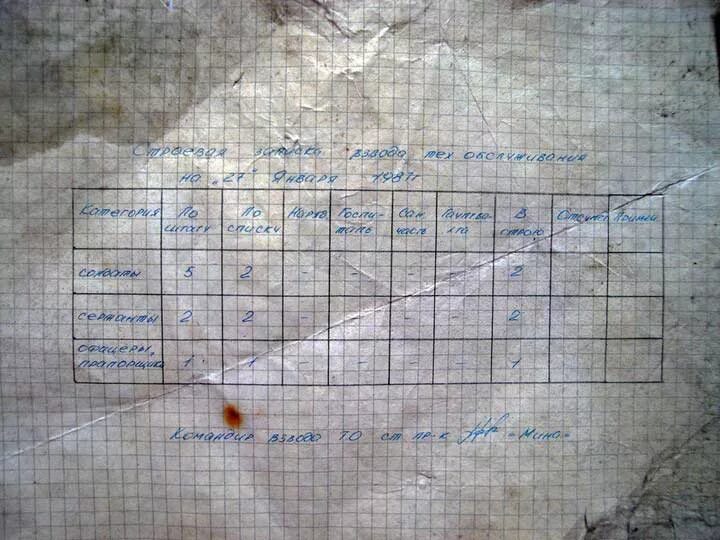 Строевая записка взвода тех обслуживания
на „27“ Января 1981г
Категория По штату По списку Наряд Госпиталь Сан. часть В строю Отсутст Примеч
солдаты 5 2 - - - - 2
сержанты 2 2 - - - - 2
офицеры, прапорщики 1 1 - - - - 1
Командир взвода ТО ст пр-к -Мина-